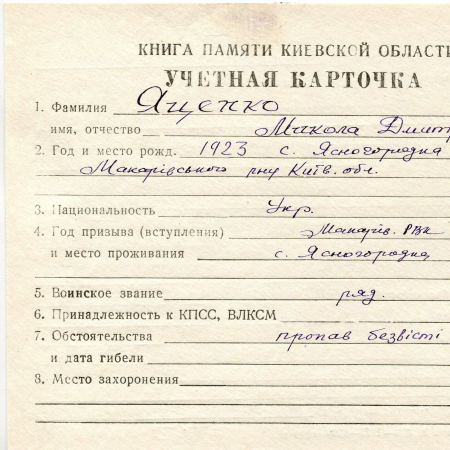 КНИГА ПАМЯТИ КИЕВСКОЙ ОБЛАСТИ
УЧЕТНАЯ КАРТОЧКА
1. Фамилия Ященко
имя, отчество Микола Дмитр
2. Год и место рожд. 1923 с. Ясногородка
Макарівського р-ну Київ. обл.
3. Национальность Укр.
4. Год призыва (вступления) Макарів. РВК
и место проживания с. Ясногородка
5. Воинское звание ряд.
6. Принадлежность к КПСС, ВЛКСМ
7. Обстоятельства пропав безвісті
и дата гибели
8. Место захоронения